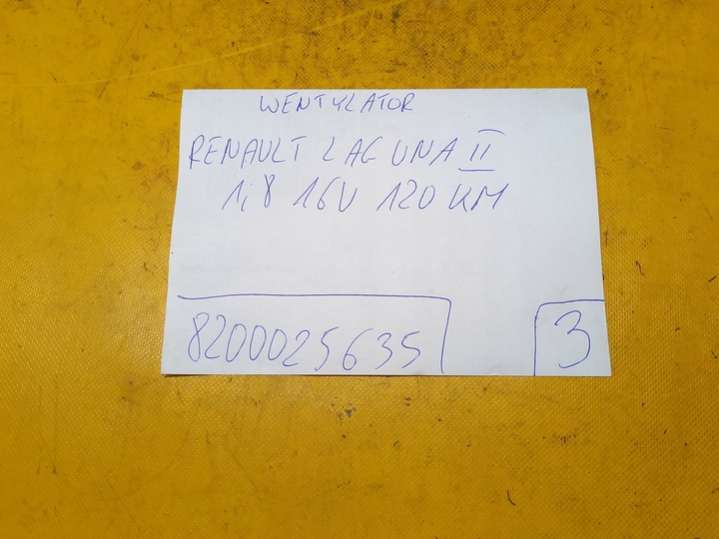 WENTYLATOR
RENAULT LAGUNA II
1,8 16V 120 KM
8200025635
3